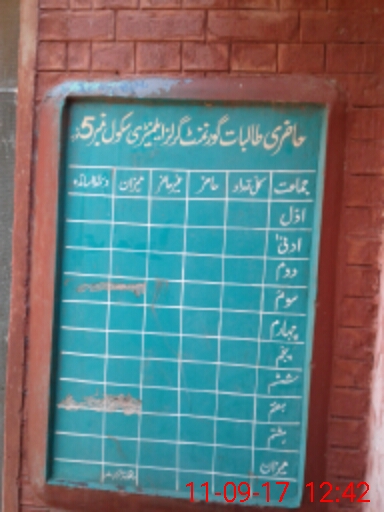 حاضری طالبات گورنمنٹ گرلز ایلیمنٹری سکول نمبر 5
جماعت کل تعداد حاضر غیر حاضر میزان دستخط اساتذہ
اوّل
ادنیٰ
دوم
سوم
چہارم
پنجم
ششم
ہفتم
ہشتم
میزان
11-09-17 12:42